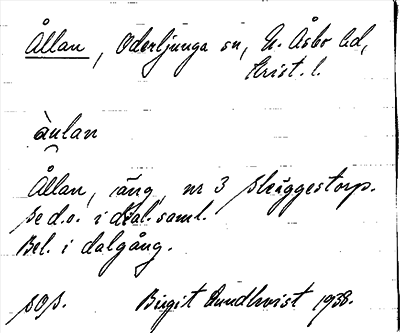 Ållan, Oderljunga sn, N. Åsbo hd,
Krist. l.
àulan
Ållan, äng, nr 3 Skäggestorp.
Se d.o. i dial. saml.
Bel. i dalgång.
SOS. Birgit Sundkvist 1938.